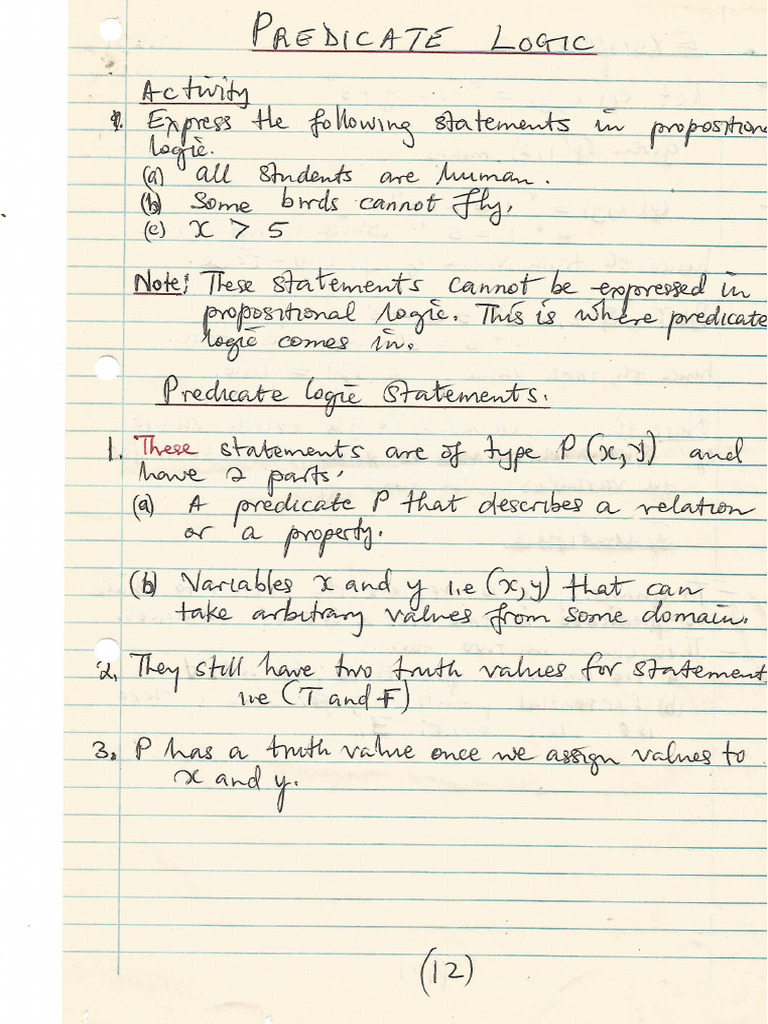 PREDICATE LOGIC
Activity
1. Express the following statements in proposition
logic.
(a) all students are human.
(b) Some birds cannot fly.
(c) x > 5
Note: These statements cannot be expressed in
propositional logic. This is where predicate
logic comes in.
Predicate logic Statements.
1. These statements are of type P (x, y) and
have 2 parts.
(a) A predicate P that describes a relation
or a property.
(b) Variables x and y i.e (x, y) that can
take arbitrary values from some domain.
2. They still have two truth values for statement
i.e (T and F)
3. P has a truth value once we assign values to
x and y.
(12)